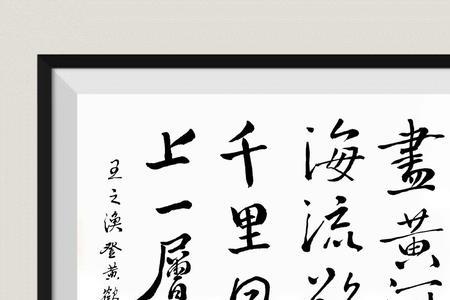 盡黃
海流
千里
上一層
王之渙登黃